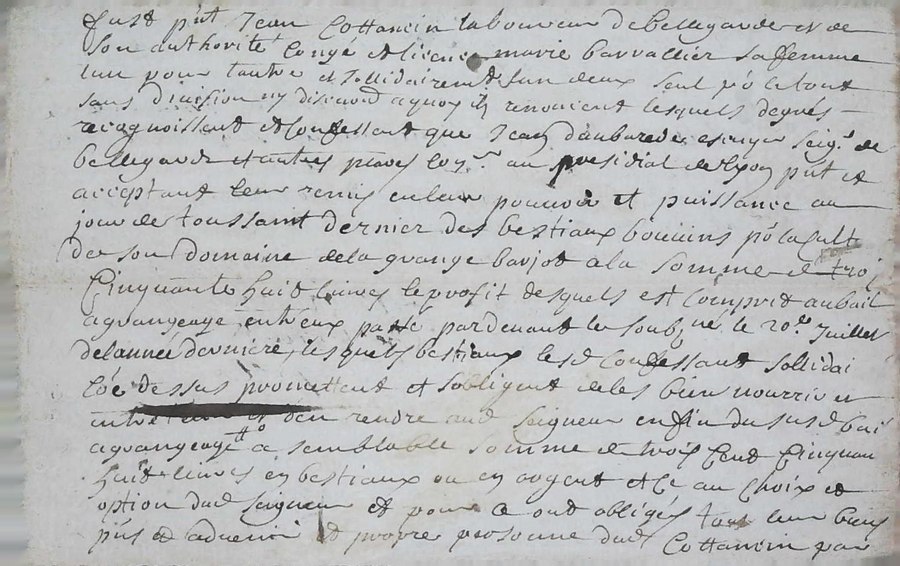 fust pnt Jean Cottancin laboureur de bellegarde et de
son authorité Congé et licence marie barvallier sa femme
lun pour lautre et sollidairemt lun deux seul po le tout
sans division ny discord a quoy ils renoncent lesquels de grés
recognoissent et Confessent que Jean daubarede escuyer seigr de
bellegarde et autres places Coner au presidial de Lyon pnt et
acceptant leur remis en leur pouvoir et puissance au
jour de toussaint dernier des bestiaux bouuins po la Cult
de son domaine de la grange barjot a la somme de troi
Cinquante huit liures le profit desquels est Compris au bail
a grangeage entreux passé pardevant le soubzné le 20e Juillet
de lannée derniere, lesquels bestiaux lesd Confessant sollidai
Coe dessus promettent et sobligent de les bien nourrir et
den rendre aud seigneur en fin du susd bai
a grangeage la semblable somme de trois Cent Cinquan
huit liures en bestiaux ou en argent et Ce au Choix et
option dud seigneur et pour Ce ont obligés tous leur biens
pns et aduenir et propre personne dud Cottancin par